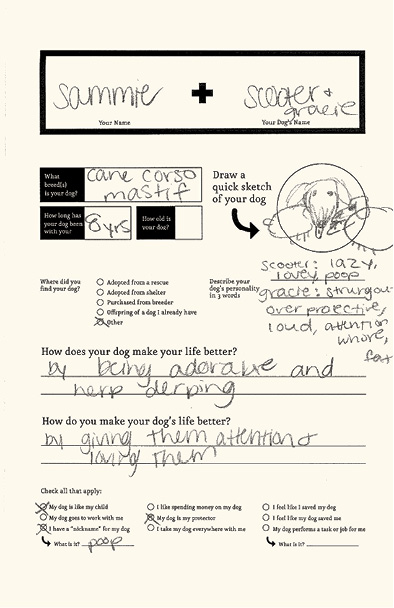 sammie + scooter +
gracie
Your Name
Your Dog's Name
What
breed(s)
is your dog?
cane corso
mastif
How long has
your dog been
with you?
8 yrs
How old is
your dog?
Draw a
quick sketch
of your dog
Where did you
find your dog?
Adopted from a rescue
Adopted from shelter
Purchased from breeder
Offspring of a dog I already have
Other
Describe your
dog's personality
in 3 words
scooter: lazy,
lovey, poop
gracie: strungout
over protective,
loud, attention
whore,
fat
How does your dog make your life better?
by being adorable and
herp derping
How do you make your dog's life better?
by giving them attention +
loving them
Check all that apply:
My dog is like my child
My dog goes to work with me
I have a "nickname" for my dog
What is it? poop
I like spending money on my dog
My dog is my protector
I take my dog everywhere with me
I feel like I saved my dog
I feel like my dog saved me
My dog performs a task or job for me
What is it?